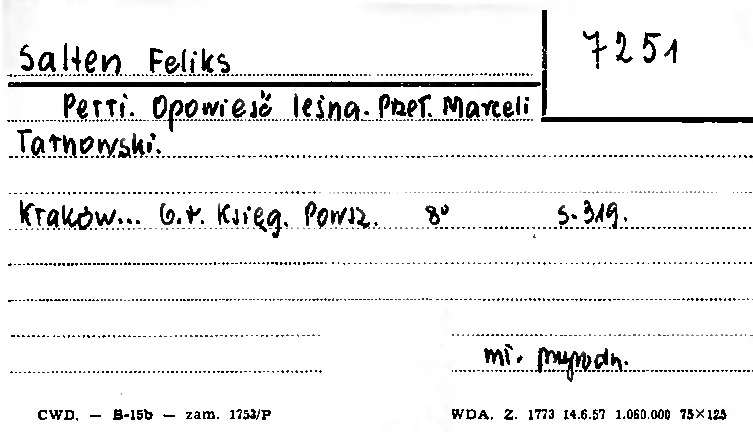 Salten Feliks
7251
Perri. Opowieść leśna. Przeł. Marceli
Tarnowski.
Kraków... b.r. Księg. Powsz. 8° s. 319.
mł.
CWD. — B-15b — zam. 1753/P
WDA. Z. 1773 14.6.57 1.060.000 75×125